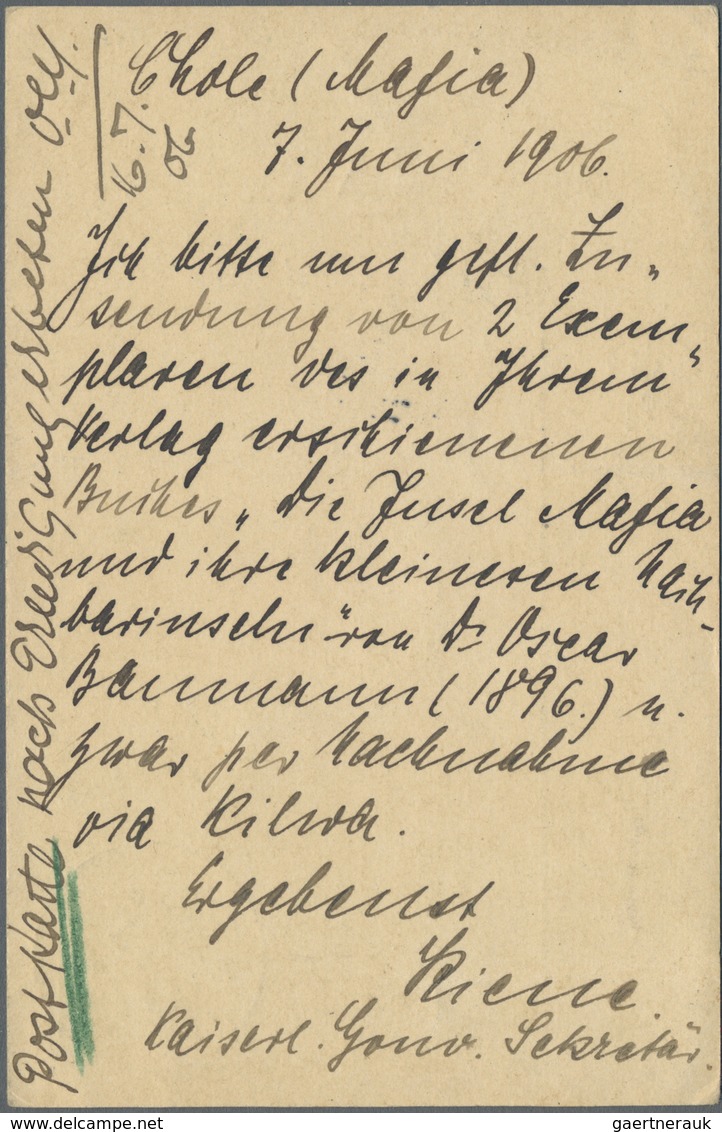 Chole (Mafia)
7. Juni 1906.
Ich bitte um gefl. Zu„
sendung von 2 Exem„
plaren des in Ihrem
Verlag erschienenen
Buches „Die Insel Mafia
und ihre kleineren Nach-
barinseln" von Dr Oscar
Baumann (1896.) u.
zwar per Nachnahme
via Kilwa.
Ergebenst
Kiene
Kaiserl. Gouv. Sekretär.
Postkarte nach Erledigung erbeten
16. 7.
06
www.delcampe.net
gaertnerauk